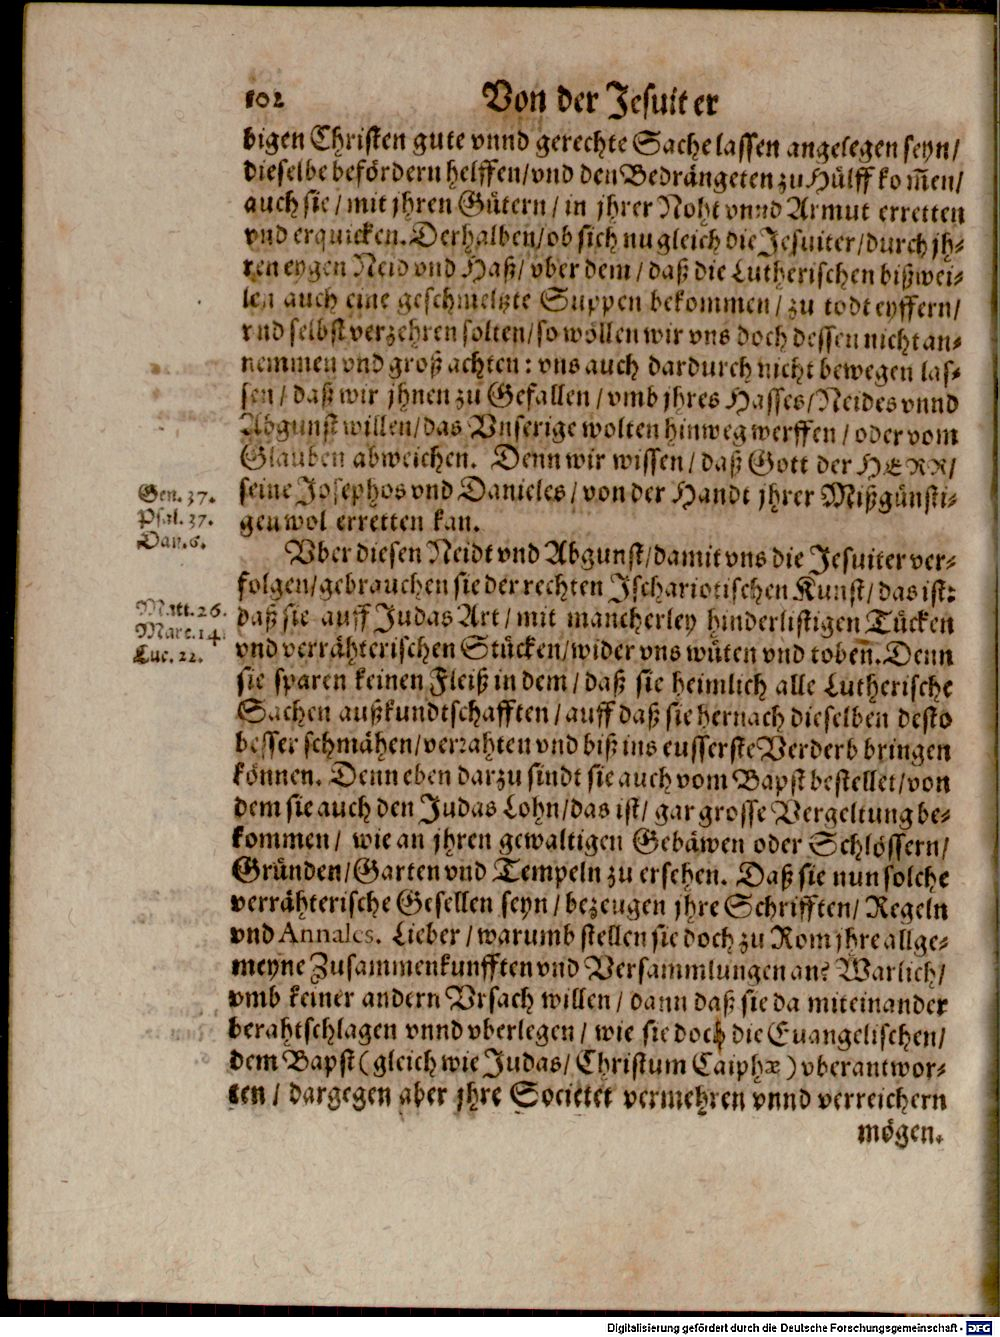 102 Von der Jesuiter
bigen Christen gute vnnd gerechte Sache lassen angelegen seyn/
dieselbe befördern helffen/vnd den Bedrängeten zu Hülff kom̃en/
auch sie/ mit jhren Gütern/ in jhrer Noht vnnd Armut erretten
vnd erquicken. Derhalben/ob sich nu gleich die Jesuiter/durch jh-
ren eygen Neid vnd Haß/ vber dem/ daß die Lutherischen bißwei-
len auch eine geschmeltzte Suppen bekommen/ zu todt eyffern/
vnd selbst verzehren solten/so wöllen wir vns doch dessen nicht an-
nemmen vnd groß achten: vns auch dardurch nicht bewegen las-
sen/ daß wir jhnen zu Gefallen/ vmb jhres Hasses/Neides vnnd
Abgunst willen/das Vnserige wolten hinweg werffen/ oder vom
Glauben abweichen. Denn wir wissen/ daß Gott der HERR/
Gen. 37. seine Josephos vnd Danieles/ von der Handt jhrer Mißgünsti-
Psal. 37. gen wol erretten kan.
Dan. 6.
Vber diesen Neidt vnd Abgunst/damit vns die Jesuiter ver-
folgen/gebrauchen sie der rechten Ischariotischen Kunst/das ist:
Matt. 26. daß sie auff Judas Art/ mit mancherley hinderlistigen Tücken
Marc. 14. vnd verrähterischen Stücken/wider vns wüten vnd tobeñ. Denn
Luc. 22. sie sparen keinen Fleiß in dem/ daß sie heimlich alle Lutherische
Sachen außkundtschafften/ auff daß sie hernach dieselben desto
besser schmähen/verrahten vnd biß ins eusserste Verderb bringen
können. Denn eben darzu sindt sie auch vom Bapst bestellet/von
dem sie auch den Judas Lohn/das ist/ gar grosse Vergeltung be-
kommen/ wie an jhren gewaltigen Gebäwen oder Schlössern/
Gründen/Garten vnd Tempeln zu ersehen. Daß sie nun solche
verrähterische Gesellen seyn/ bezeugen jhre Schrifften/ Regeln
vnd Annales. Lieber/ warumb stellen sie doch zu Rom jhre allge-
meyne Zusammenkunfften vnd Versammlungen an? Warlich/
vmb keiner andern Vrsach willen/ dann daß sie da miteinander
berahtschlagen vnnd vberlegen/ wie sie doch die Euangelischen/
dem Bapst (gleich wie Judas/ Christum Caiphæ) vberantwor-
ten/ dargegen aber jhre Societet vermehren vnnd verreichern
mögen.
Digitalisierung gefördert durch die Deutsche Forschungsgemeinschaft - DFG